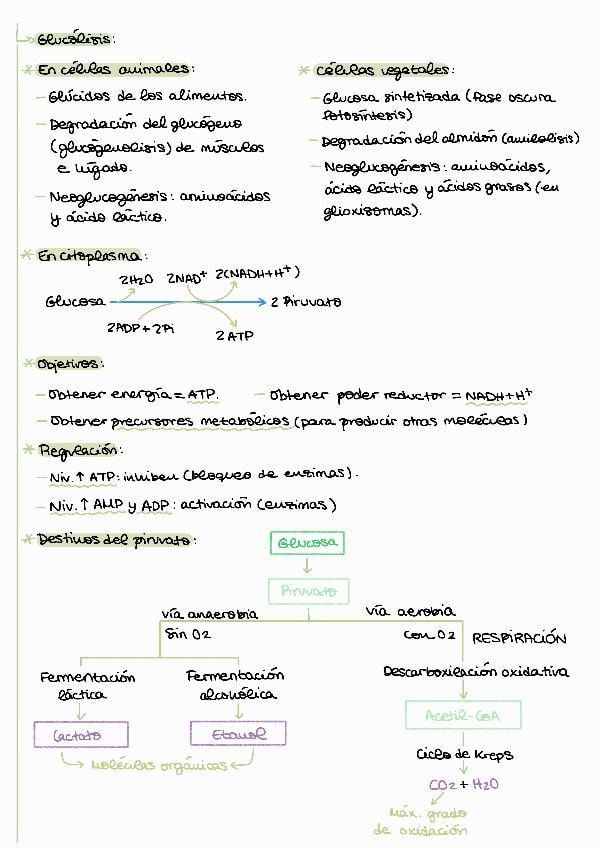 Glucólisis:
* En células animales:
- Glúcidos de los alimentos.
- Degradación del glucógeno
(glucogenolisis) de músculos
e hígado.
- Neoglucogénesis: aminoácidos
y ácido láctico.
* Células vegetales:
- Glucosa sintetizada (fase oscura
fotosíntesis)
- Degradación del almidón (amilolisis)
- Neoglucogénesis: aminoácidos,
ácido láctico y ácidos grasos (en
glioxisomas).
* En citoplasma:
2H2O 2NAD+ 2(NADH+H+)
Glucosa 2 Piruvato
2ADP+2Pi 2 ATP
* Objetivos:
- Obtener energía = ATP. - Obtener poder reductor = NADH+H+
- Obtener precursores metabólicos (para producir otras moléculas)
* Regulación:
- Niv. ↑ ATP: inhiben (bloqueo de enzimas).
- Niv. ↑ AMP y ADP: activación (enzimas)
* Destinos del piruvato:
Glucosa
Piruvato
vía anaerobia vía aerobia
Sin O2 con O2 RESPIRACIÓN
Fermentación
láctica
Fermentación
alcohólica
Descarboxilación oxidativa
Lactato Etanol Acetil-CoA
moléculas orgánicas
Ciclo de Kreps
CO2 + H2O
Máx. grado
de oxidación